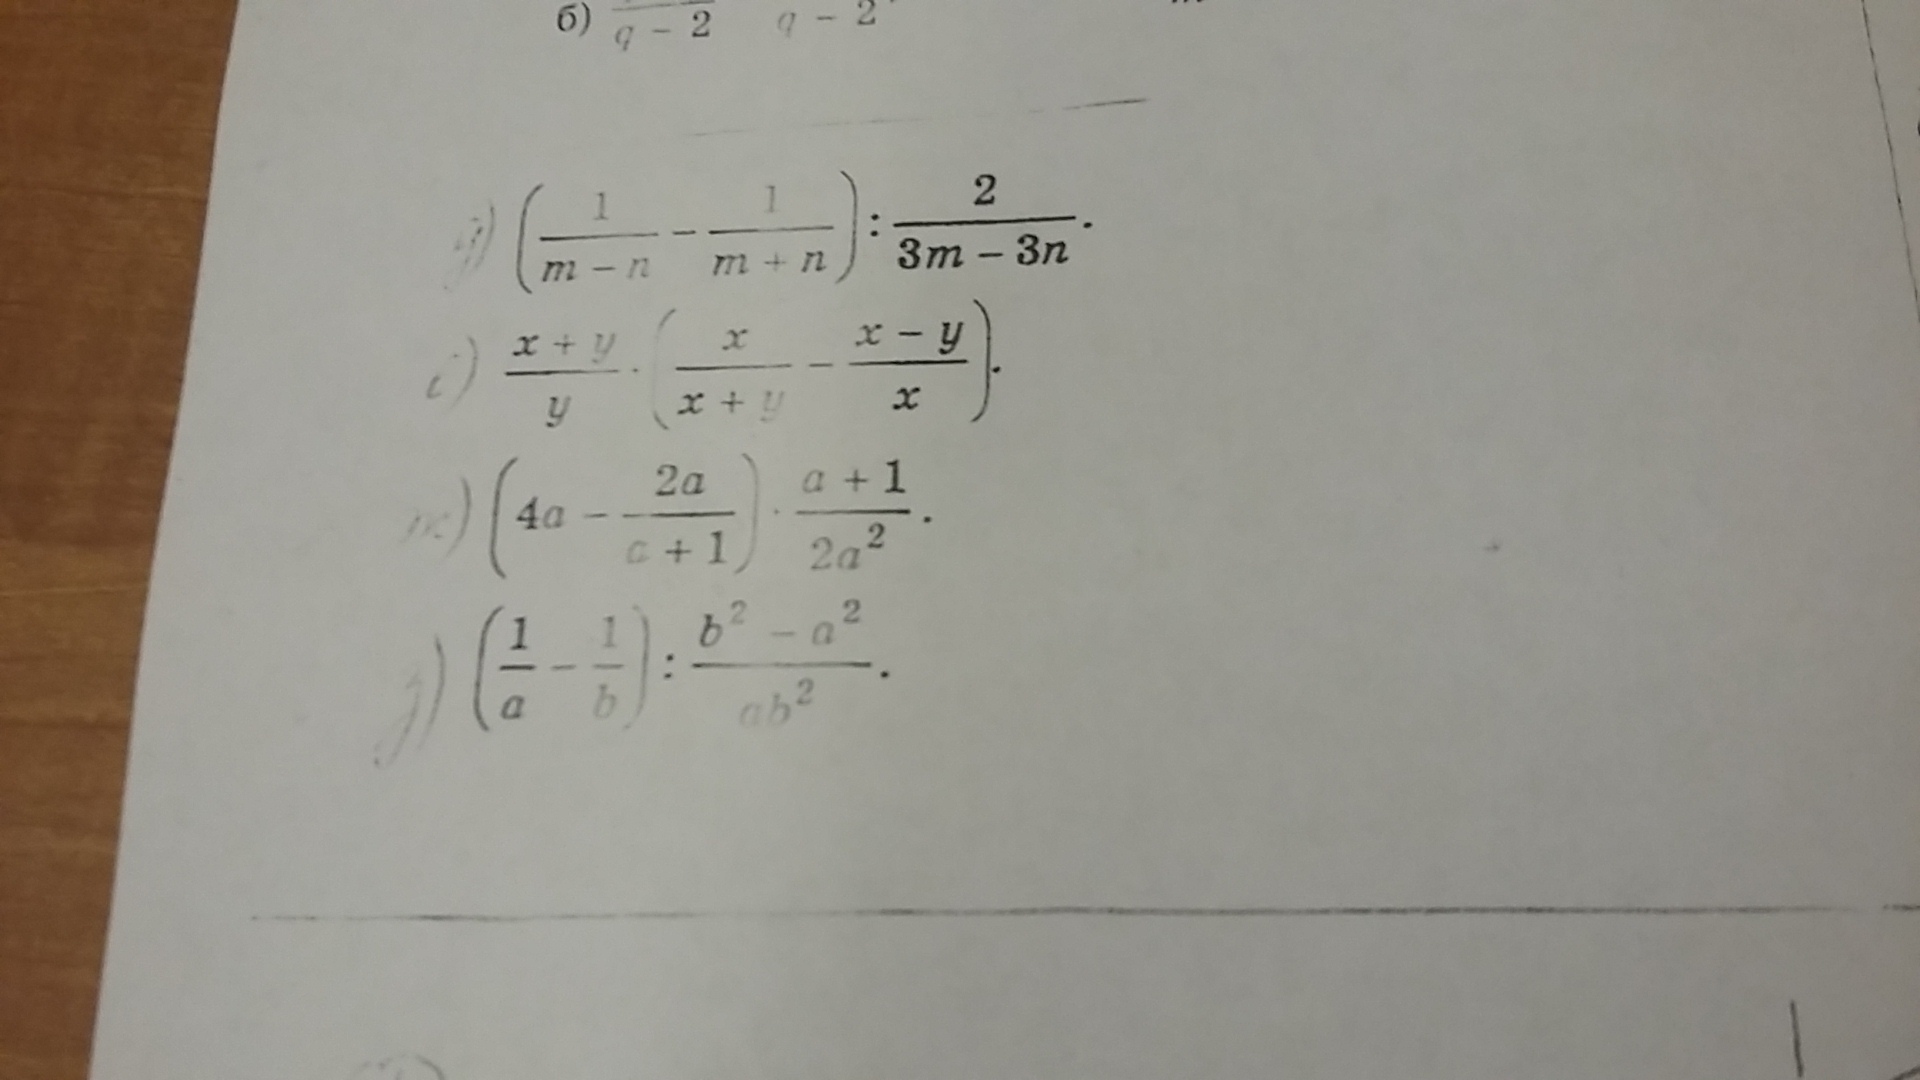 б) q − 2 q − 2
д) (1/(m − n) − 1/(m + n)) : 2/(3m − 3n).
е) (x + y)/y · (x/(x + y) − (x − y)/x).
ж) (4a − 2a/(a + 1)) · (a + 1)/(2a²).
з) (1/a − 1/b) : (b² − a²)/(ab²).